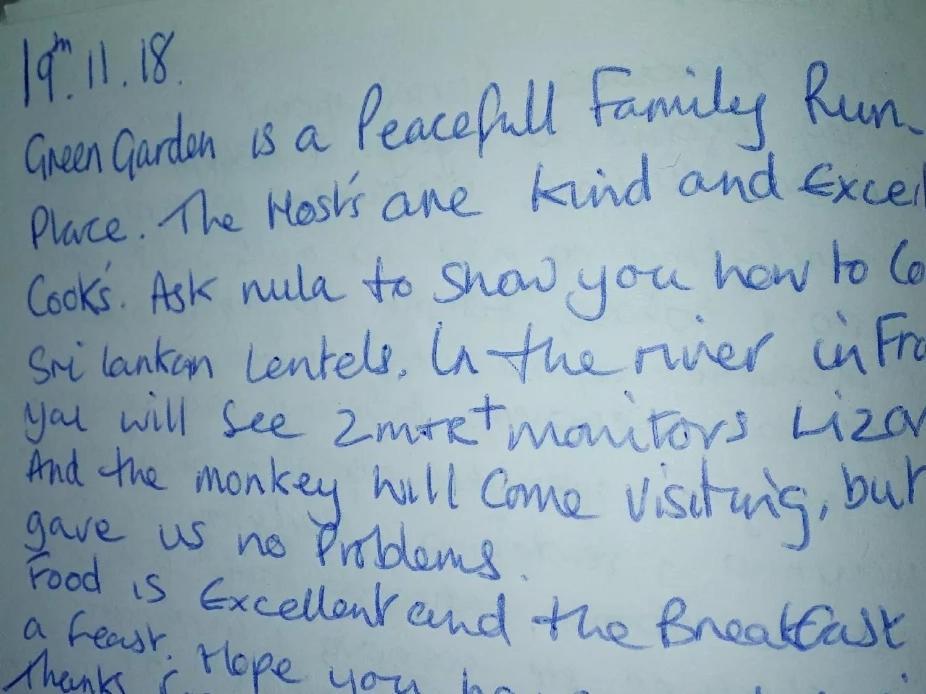 19th.11.18.
Green Garden is a Peacefull Family Run
Place. The Host's are kind and Excel
Cook's. Ask nula to Show you how to Co
Sri lankan Lentels. In the river in Fro
you will See 2mtr+ monitors Liza
And the monkey will Come visiting, but
gave us no Problems.
Food is Excellent and the Breakfast
a feast. Hope you
Thanks